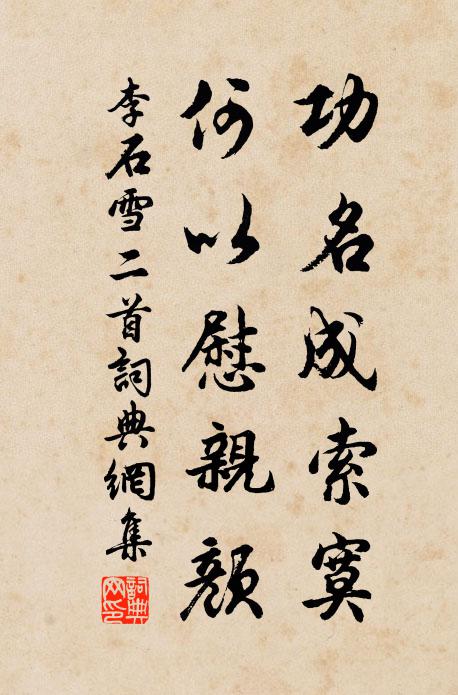 功名成索寞
何以慰親顏
李石雪二首詞典網集
詞典網印